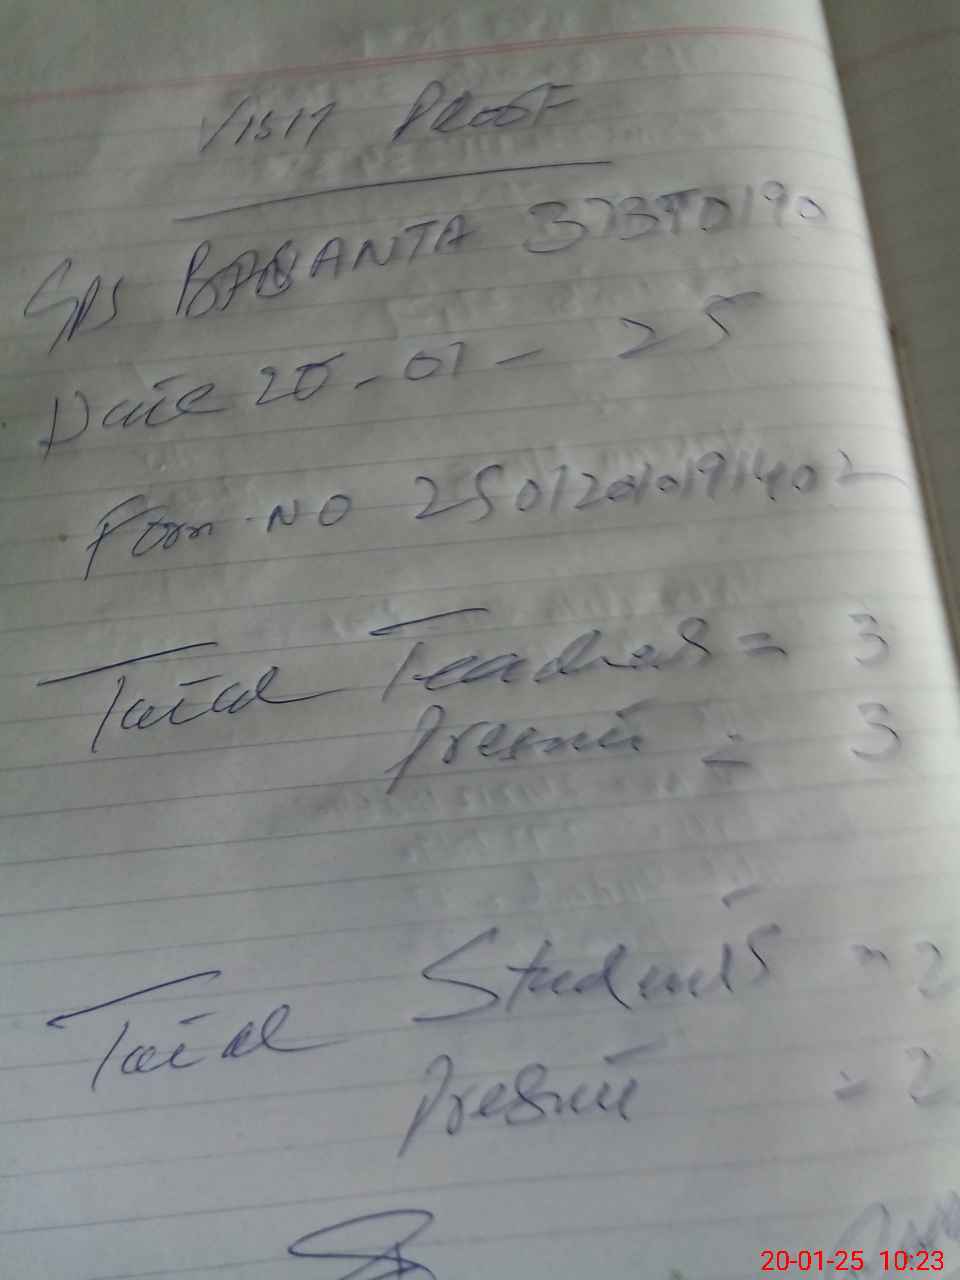 VISIT PROOF
GPS BASANTA 37370190
Date 20-01-25
Form NO 25012010191402
Total Teachers = 3
Present = 3
Total Students = 2
Present = 2
20-01-25 10:23